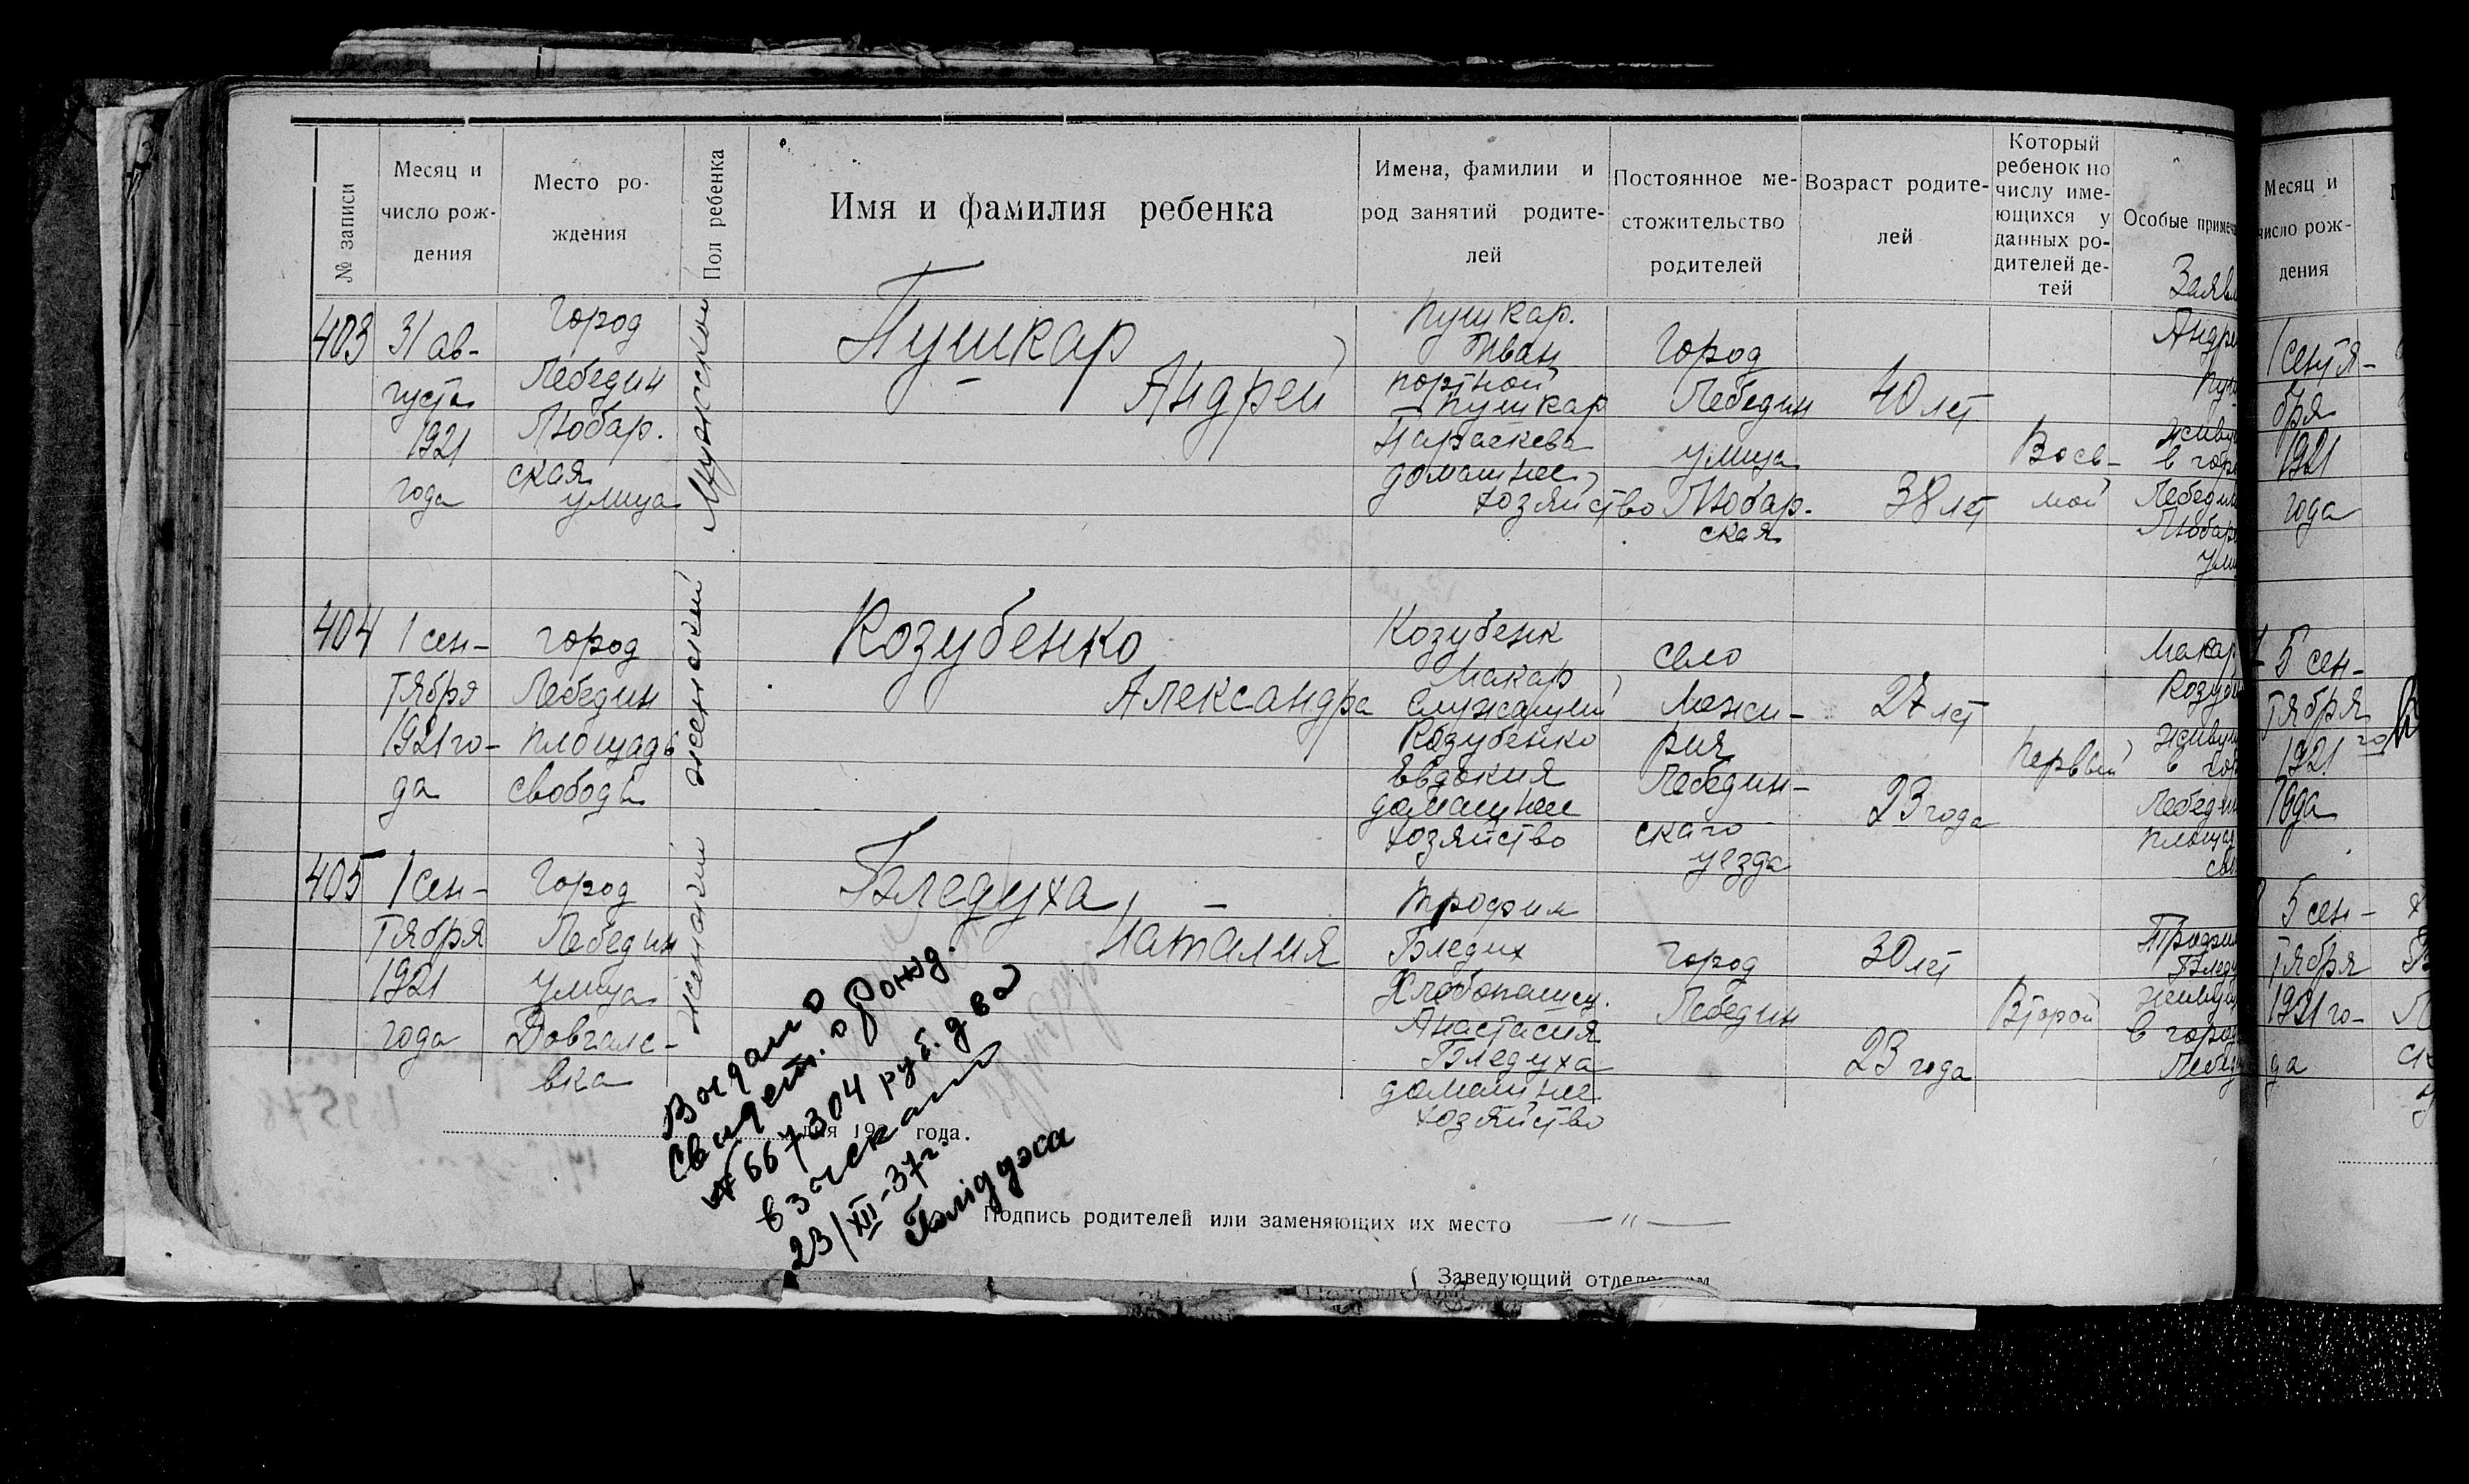 № записи
Месяц и число рож-дения
Место ро-ждения
Пол ребенка
Имя и фамилия ребенка
Имена, фамилии и род занятий родите-лей
Постоянное ме-стожительство родителей
Возраст родите-лей
Который ребенок по числу име-ющихся у данных ро-дителей де-тей
Особые примеч
403
31 ав-
густа
1921
года
Город
Лебедин
Любар.
ская
улица
Мужской
Пушкар
Андрей
Пушкар.
Иван
портной
Пушкар
Параскева
домашнее
хозяйство
Город
Лебедин
улица
Любар.
ская
40 лет
38 лет
Вось-
мой
Заявл
Андре
Пуш
живущ
в горо
Лебедин
Любар
ули
404
1 сен-
тября
1921 го-
да
город
Лебедин
площадь
свободы
женский
Козубенко
Александра
Козубенк
Макар
Служащий
Козубенко
Евдокия
домашнее
хозяйство
село
Межи-
рич
Лебедин-
скаго
уезда
27 лет
23 года
Первый
Макар
Козубе
живущ
в гор
Лебедин
площад
сво
405
1 сен-
тября
1921
года
Город
Лебедин
улица
Довгале-
вка
женский
Бледуха
Наталия
Трофим
Бледух
Хлебопашец.
Анастасия
Бледуха
домашнее
хозяйство
город
Лебедин
30 лет
23 года
Второй
Трофим
Бледу
живущ
в город
Лебед
Выдано
свидет. о рожд.
№ 667304 руб. два
взыскано
23/XII-37 г.
дня 19 года.
Подпись родителей или заменяющих их место — „ —
Заведующий отделением
Месяц и
число рож-
дения
1 сентя-
бря
1921
года
5 сен-
тября
1921 го
года
5 сен-
тября
1921 го-
да